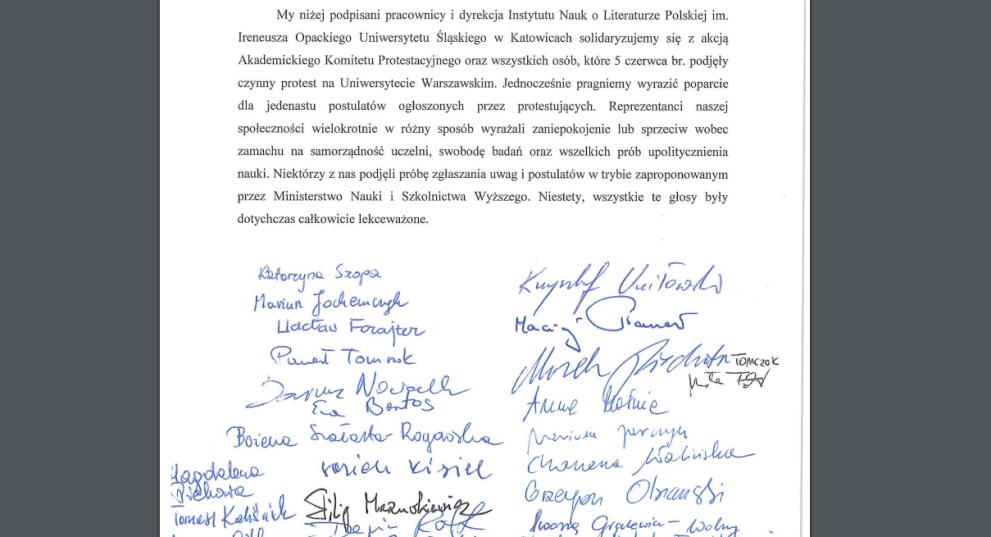 My niżej podpisani pracownicy i dyrekcja Instytutu Nauk o Literaturze Polskiej im.
Ireneusza Opackiego Uniwersytetu Śląskiego w Katowicach solidaryzujemy się z akcją
Akademickiego Komitetu Protestacyjnego oraz wszystkich osób, które 5 czerwca br. podjęły
czynny protest na Uniwersytecie Warszawskim. Jednocześnie pragniemy wyrazić poparcie
dla jedenastu postulatów ogłoszonych przez protestujących. Reprezentanci naszej
społeczności wielokrotnie w różny sposób wyrażali zaniepokojenie lub sprzeciw wobec
zamachu na samorządność uczelni, swobodę badań oraz wszelkich prób upolitycznienia
nauki. Niektórzy z nas podjęli próbę zgłaszania uwag i postulatów w trybie zaproponowanym
przez Ministerstwo Nauki i Szkolnictwa Wyższego. Niestety, wszystkie te głosy były
dotychczas całkowicie lekceważone.
Katarzyna Szopa
Krzysztof Uniłowski
Marian Jochemczyk
Wacław Forajter
Maciej
Paweł Tomczok
Marek
TOMCZOK
Dariusz Nowacki
Ewa Bartos
Anna
Bożena Szałasta-Rogowska
Marian Kisiel
Magdalena
Piekara
Grzegorz Olszański
Tomasz
Filip Mazurkiewicz
Iwona